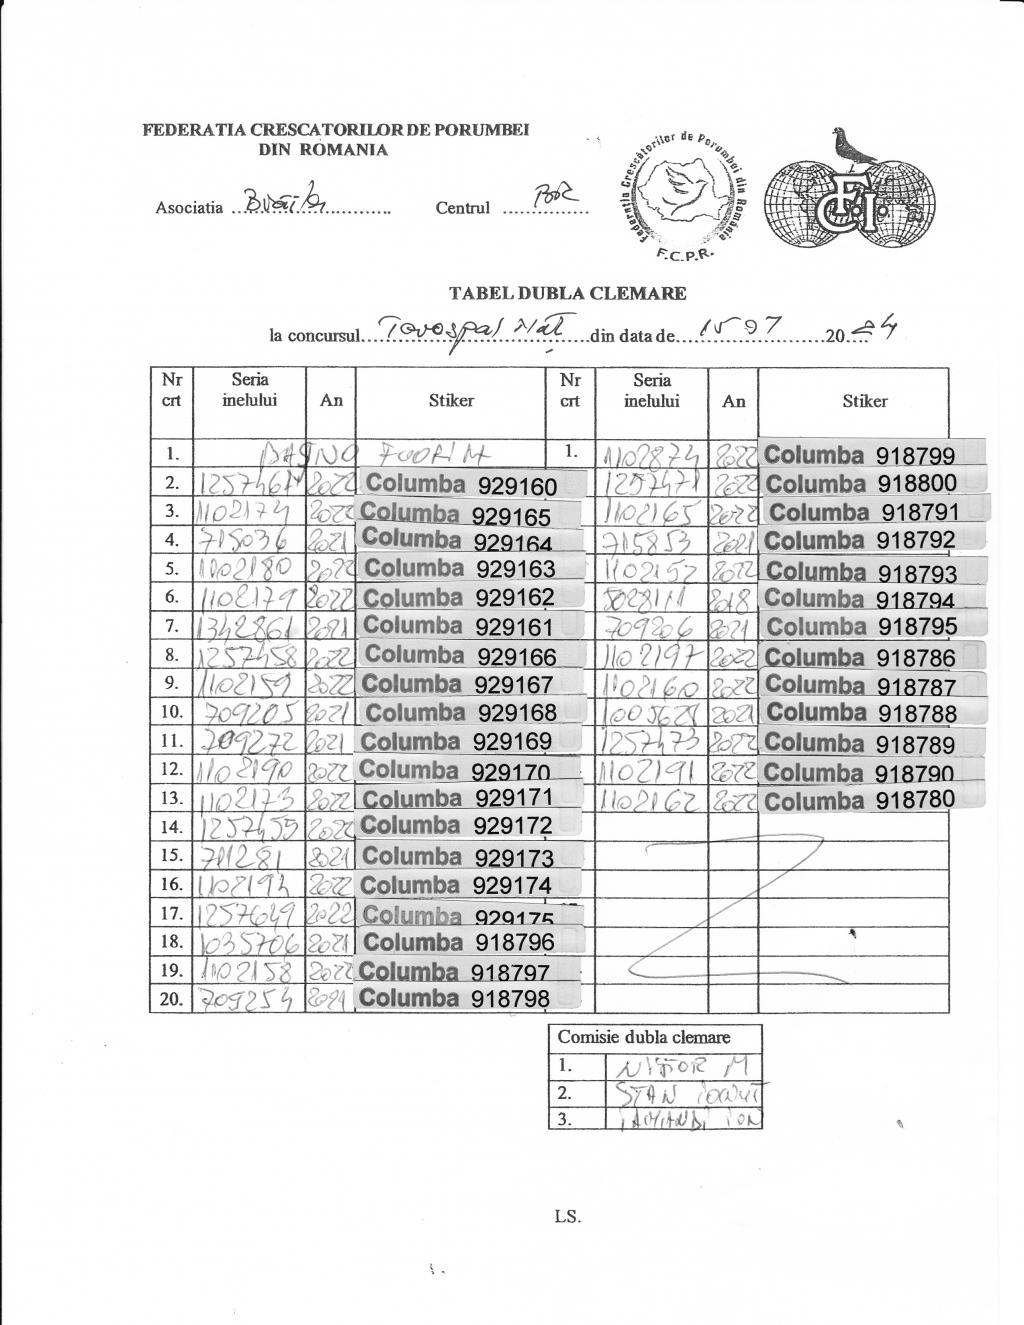 FEDERATIA CRESCATORILOR DE PORUMBEI
DIN ROMANIA
Federatia Crescătorilor de Porumbei din România
F.C.P.R.
F.C.I.
Asociatia Braila Centrul
TABEL DUBLA CLEMARE
la concursul din data de 15 07 2024
Nr crt Seria inelului An Stiker Nr crt Seria inelului An Stiker
1. 1. 1102874 2022 Columba 918799
2. 1257467 2022 Columba 929160 1257471 2022 Columba 918800
3. 1102174 2022 Columba 929165 1102165 2022 Columba 918791
4. 715036 2021 Columba 929164 715853 2021 Columba 918792
5. 1102180 2022 Columba 929163 1102157 2022 Columba 918793
6. 1102179 2022 Columba 929162 2018 Columba 918794
7. 1342861 2021 Columba 929161 709206 2021 Columba 918795
8. 1257458 2022 Columba 929166 1102197 2022 Columba 918786
9. 1102159 2022 Columba 929167 1102160 2022 Columba 918787
10. 709205 2021 Columba 929168 2021 Columba 918788
11. 709272 2021 Columba 929169 1257473 2022 Columba 918789
12. 1102190 2022 Columba 929170 1102191 2022 Columba 918790
13. 1102173 2022 Columba 929171 1102162 2022 Columba 918780
14. 1257455 2022 Columba 929172
15. 701281 2021 Columba 929173
16. 1102194 2022 Columba 929174
17. 1257649 2022 Columba 929175
18. 1035706 2021 Columba 918796
19. 1102158 2022 Columba 918797
20. 709254 2021 Columba 918798
Comisie dubla clemare
1. M
2. STAN IONUT
3. ION
LS.